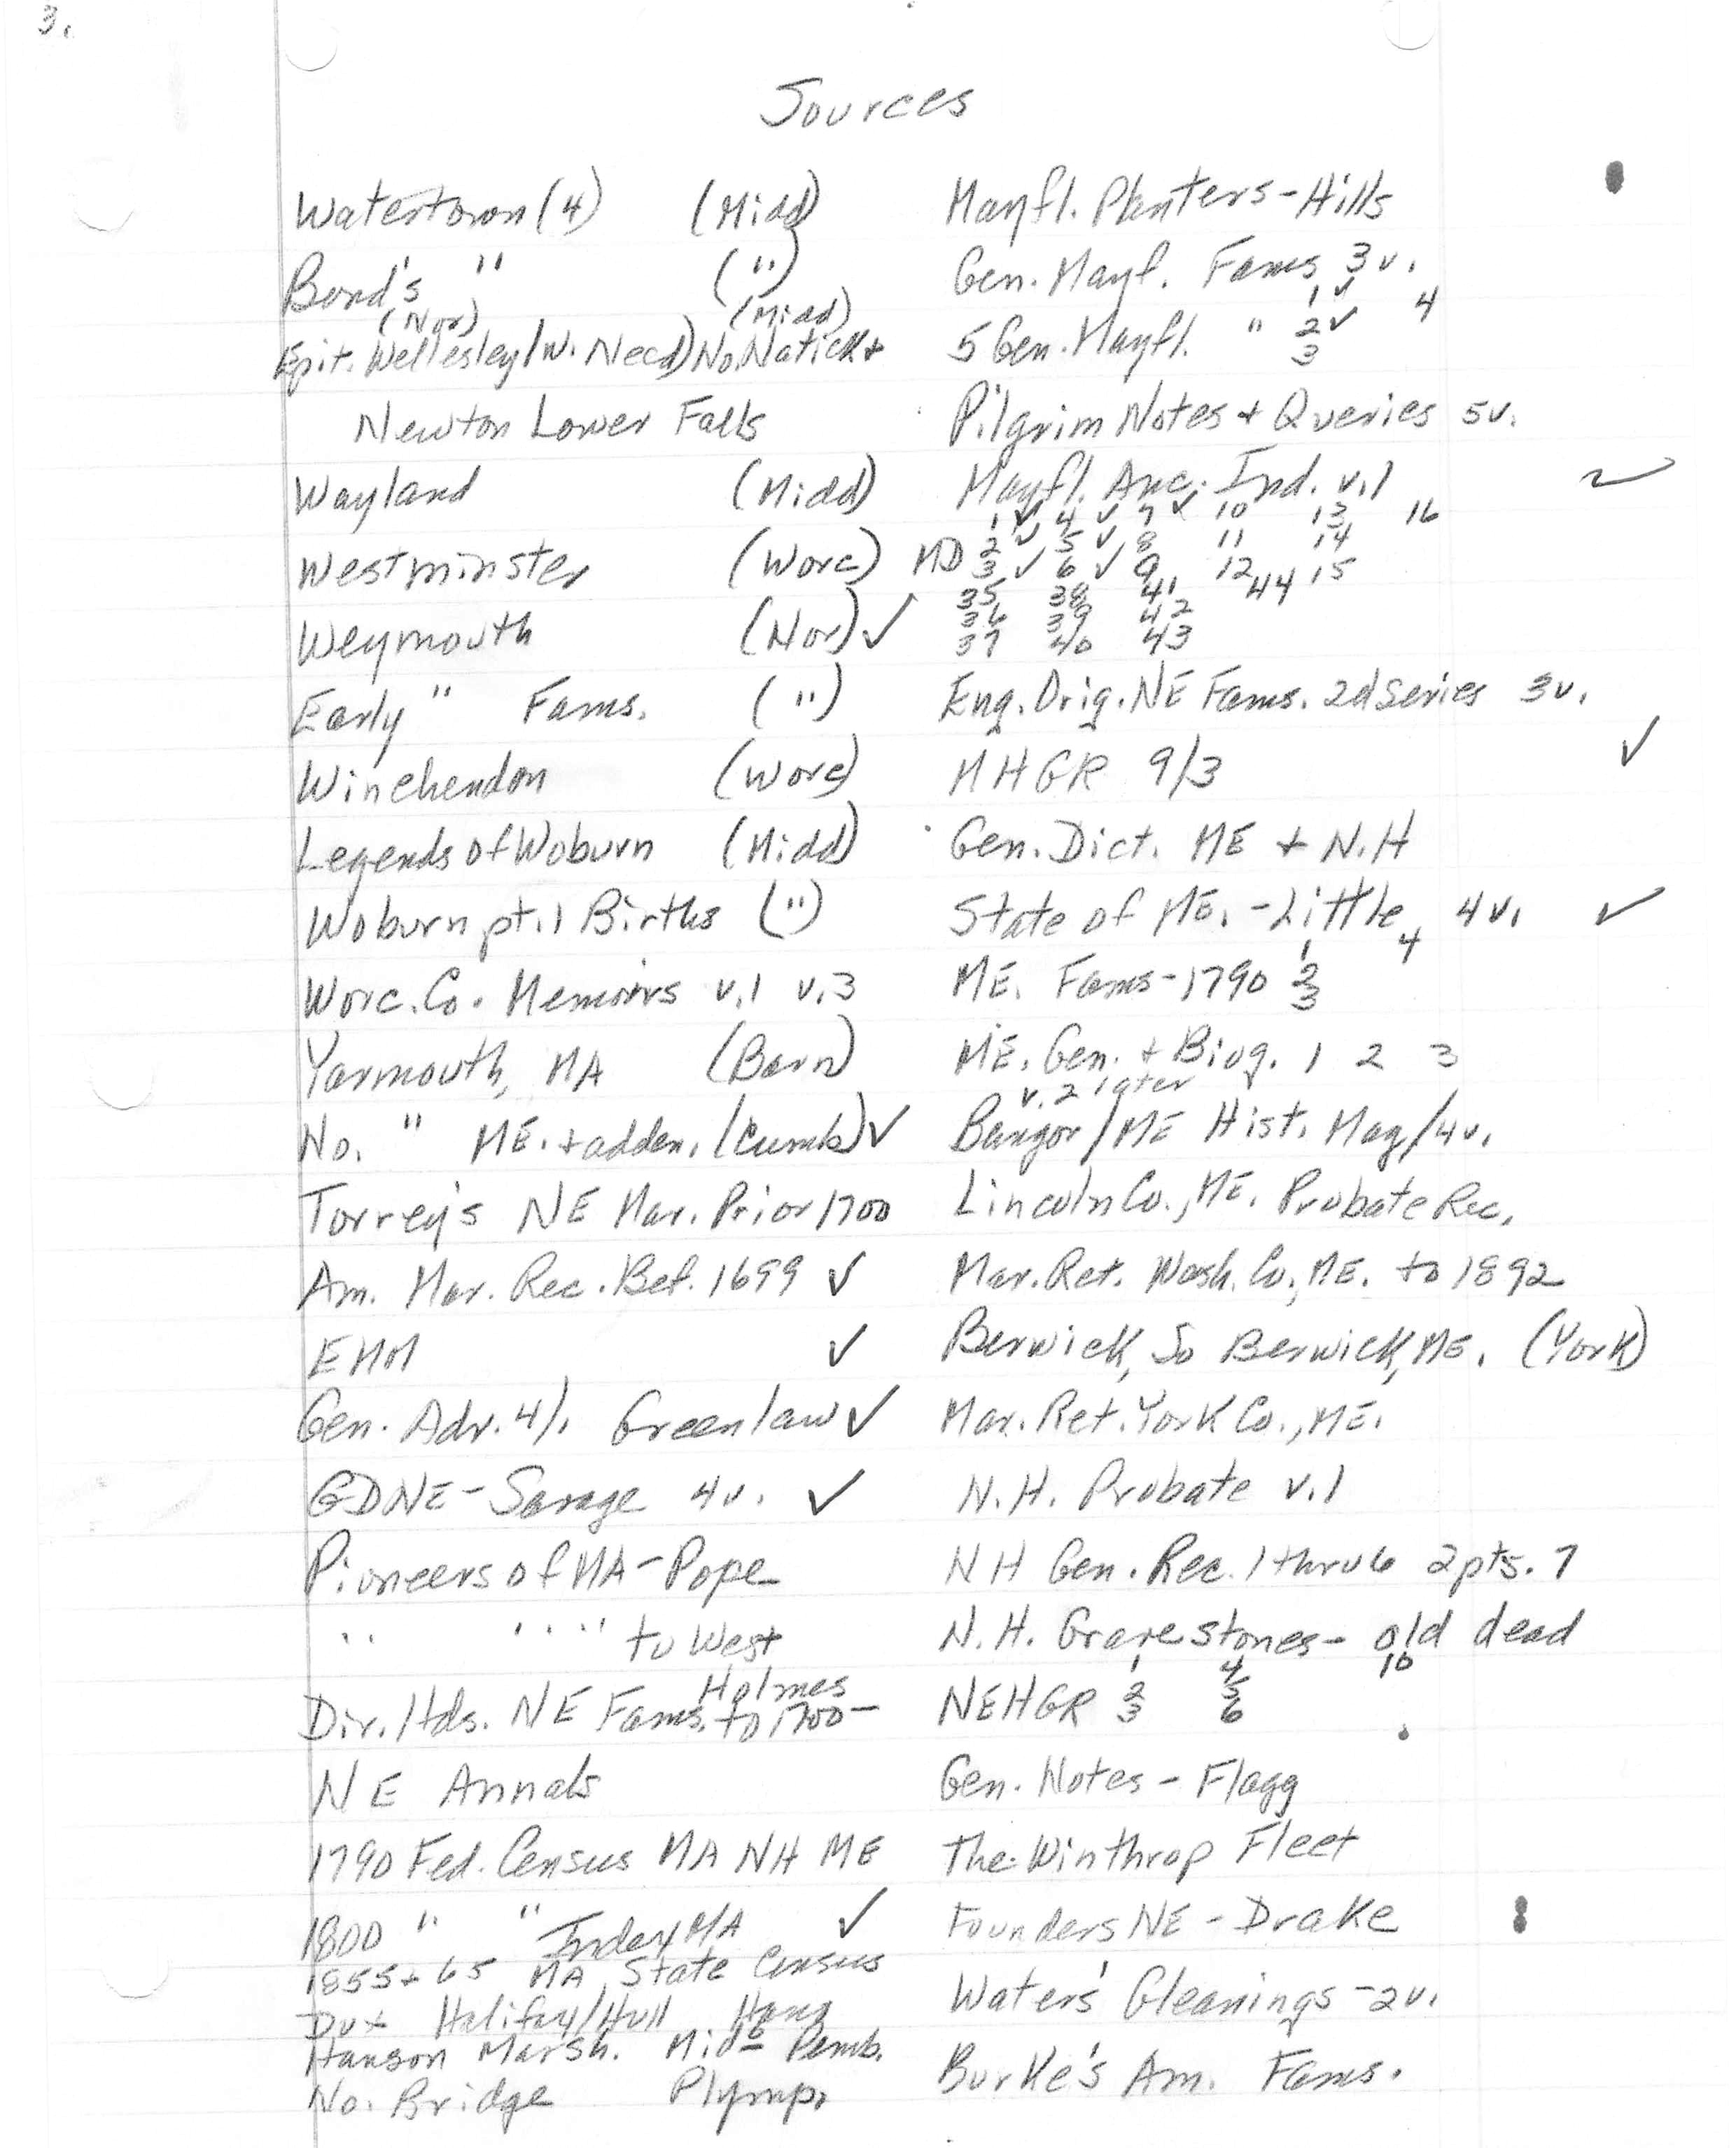 3.
Sources
Watertown (4) (Midd)
Bond's " (")
(Nor) (Midd)
Epit. Wellesley/W. Need) No. Natick +
Newton Lower Falls
Wayland (Midd)
Westminster (Worc)
Weymouth (Nor) ✓
Early " Fams. (")
Winchendon (Worc)
Legends of Woburn (Midd)
Woburn pt. 1 Births (")
Worc. Co. Memoirs v.1 v.3
Yarmouth, MA (Barn)
No. " ME. + adden. (Cumb) ✓
Torrey's NE Mar. Prior 1700
Am. Mar. Rec. Bef. 1699 ✓
EMM ✓
Gen. Adv. 4/. Greenlaw ✓
GDNE - Savage 4v. ✓
Pioneers of MA - Pope
" " " to West
Holmes
Dir. Hds. NE Fams. to 1700 -
NE Annals
1790 Fed. Census MA NH ME
1800 " " Index MA ✓
1855 + 65 MA State Census
Dux Halifax/Hull
Hanson Marsh. Mid- Pemb.
No. Bridge Plymp.
Mayfl. Planters - Hills
Gen. Mayf. Fams 3v.
1 ✓ 4
5 Gen. Mayfl. " 2 ✓
3
Pilgrim Notes + Queries 5v.
Mayfl. Anc. Ind. v.1
1 ✓ 4 ✓ 7 ✓ 10 13 16
MD 2 ✓ 5 ✓ 8 11 14
3 ✓ 6 ✓ 9 12 15
35 38 41 44
36 39 42
37 40 43
Eng. Orig. NE Fams. 2d Series 3v.
MHGR 9/3 ✓
Gen. Dict. ME + N.H
State of ME. - Little 4v. ✓
1 4
ME. Fams - 1790 2
3
ME. Gen. + Biog. 1 2 3
v. 2 later
Bangor/ME Hist. Mag/4v.
Lincoln Co., ME. Probate Rec.
Mar. Ret. Wash. Co., ME. to 1892
Berwick, So Berwick, ME. (York)
Mar. Ret. York Co., ME.
N.H. Probate v.1
NH Gen. Rec. 1 thru 6 2 pts. 7
N.H. Gravestones - old dead
1 4 10
NEHGR 2 5
3 6
Gen. Notes - Flagg
The Winthrop Fleet
Founders NE - Drake
Waters' Gleanings - 2v.
Burke's Am. Fams.